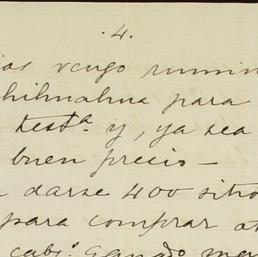 .4.
vengo
Chihuahua para
test.ª y, ya sea
buen precio —
darse 400 sitio
para comprar
cabs. Ganado